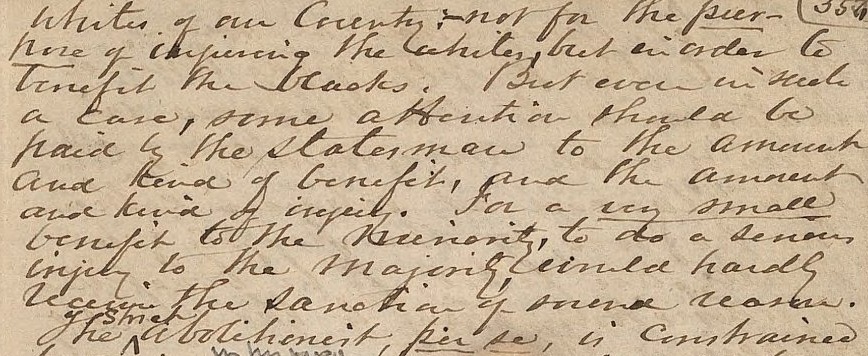 whites of our County:- not for the pur- 354
pose of injuring the whites, but in order to
benefit the blacks. But even in such
a case, some attention should be
paid by the statesman to the amount
and kind of benefit, and the amount
and kind of injury. For a very small
benefit to the minority, to do a serious
injury to the majority, would hardly
receive the sanction of sound reason.
The strict abolitionist, per se, is constrained